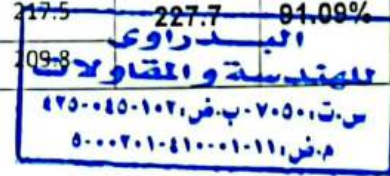 217.5 227.7 91.09%
209.8
البـــدراوى
للهندسة و المقاولات
س.ت: ٧٠٥٠ - ب.ض: ١٠٢-٠٤٥-٤٢٥
م.ض: ١١-٠٠٠١-٤١٠-٢٠١-٠٠-٥